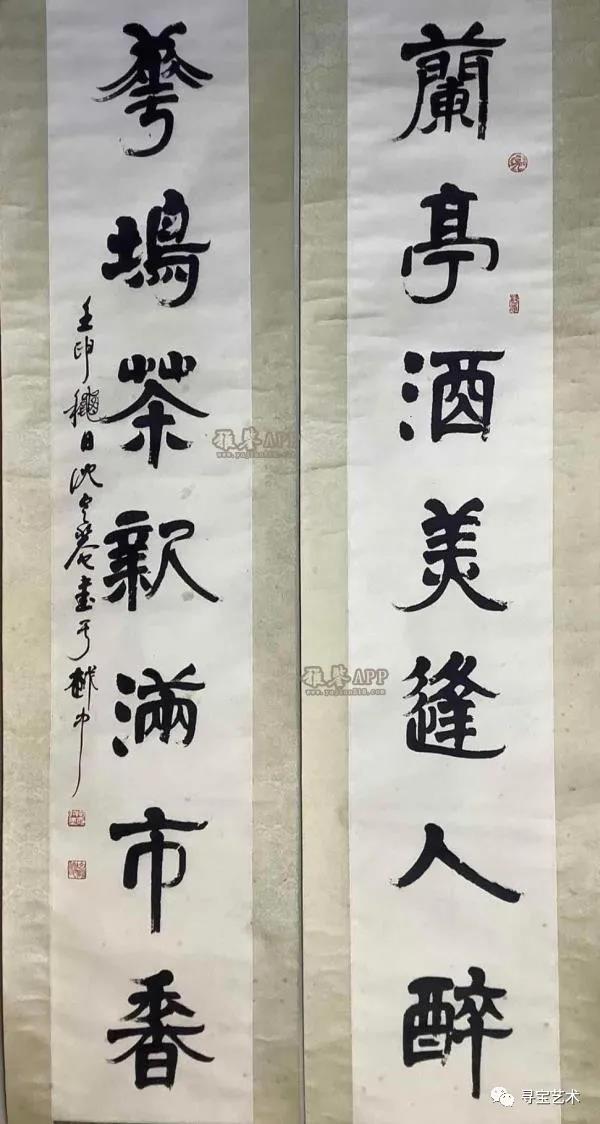 蘭亭酒美逢人醉
華塢茶新滿市香
壬申龝日沈定庵書于越中
雅鉴APP
www.yajian518.com
雅鉴APP
www.yajian518.com
寻宝艺术